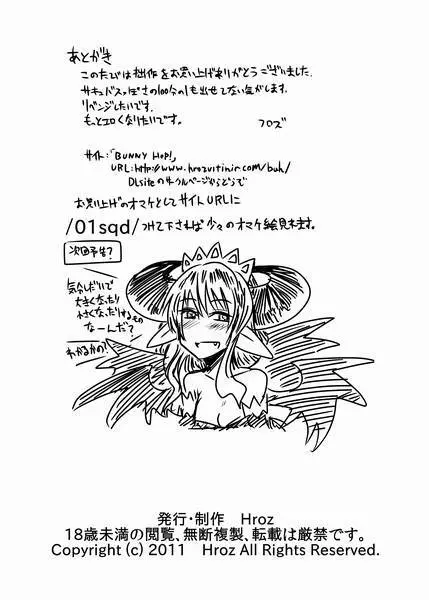 あとがき
このたびは拙作をお買い上げありがとうございました。
サキュバスっぽさの100分の1も出せてない気がします。
リベンジしたいです。
もっとエロくなりたいです。
フロズ
サイト:「BUNNY HOP!」
URL:http://www.hrozvitnir.com/buh/
DLsiteのサークルページからどうぞ
お買い上げのオマケとしてサイトURLに
/01sqd/つけて下されば少々のオマケ絵見れます。
次回予告?
気分しだいで
大きくなったり
小さくなったりするもの
なーんだ?
わかるかの?
発行・制作 Hroz
18歳未満の閲覧、無断複製、転載は厳禁です。
Copyright (c) 2011 Hroz All Rights Reserved.